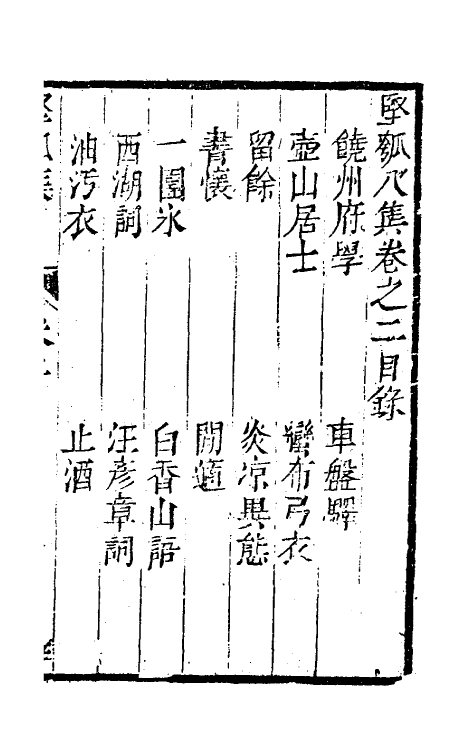 堅瓠八集卷之二目錄
饒州府學　車盤驛
壺山居士　蠻布弓衣
留餘　炎凉異態
書懷　閒適
一團氷　白香山語
西湖詞　汪彥章詞
油污衣　止酒